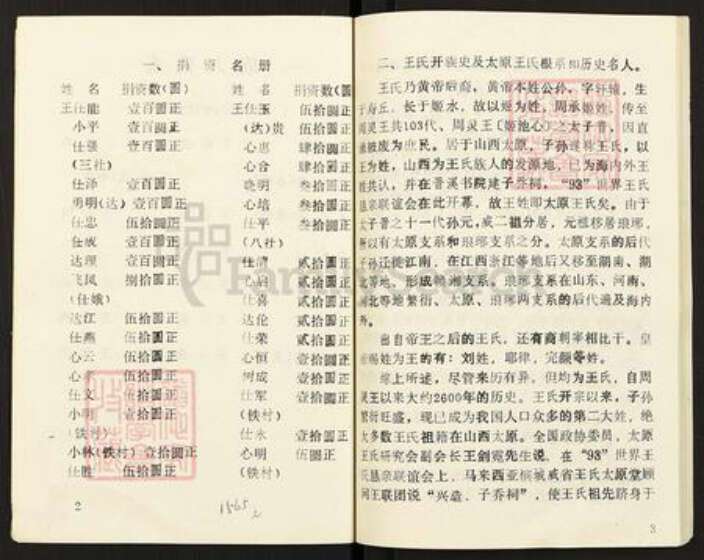 一、捐资名册
姓 名 捐资数(圆) 姓 名 捐资数(圆
王仕能 壹百圆正 王仕玉 伍拾圆正
小平 壹百圆正 (达)贵 伍拾圆正
仕强 壹百圆正 心忠 肆拾圆正
(三社) 心合 肆拾圆正
仕泽 壹百圆正 晓明 叁拾圆正
勇明(达) 壹百圆正 心培 叁拾圆正
仕忠 伍拾圆正 仕平 叁拾圆正
仕成 壹百圆正 (八社)
达理 壹百圆正 仕清 贰拾圆正
飞凤 捌拾圆正 心启 贰拾圆正
(仕娥) 仕喜 贰拾圆正
达江 伍拾圆正 达伦 贰拾圆正
仕燕 伍拾圆正 仕荣 贰拾圆正
心云 伍拾圆正 心恒 壹拾圆正
心孝 伍拾圆正 树成 壹拾圆正
仕文 伍拾圆正 仕军 壹拾圆正
小明 壹拾圆正 (铁村)
(铁村) 仕永 壹拾圆正
小林(铁村) 壹拾圆正 心明 伍圆正
仕胜 伍拾圆正 (铁村)
2
1565元
二、王氏开族史及太原王氏根系和历史名人。
王氏乃黄帝后裔,黄帝本姓公孙,字轩辕,生
于寿丘,长于姬水,故以姬为姓,周承姬姓,传至
周灵王共103代、周灵王〔姬池心〕之太子晋,因直
谏被废为庶民。居于山西太原,子孙遂称王氏,以
王为姓,山西为王氏族人的发源地,已为海内外王
姓共认,并在晋溪书院建子乔祠,“93”世界王氏
恳亲联谊会在此开幕,故王姓即太原王氏矣。由于
太子晋之十一代孙元,威二祖分居,元祖移居琅琊,
所以有太原支系和琅琊支系之分。太原支系的后代
子孙迁徙江南,在江西浙江等地后又移至湖南、湖
北等地,形成湖湘支系、琅琊支系在山东、河南、
湖北等地繁衍、太原、琅琊两支系的后代遍及海内
外。
出自帝王之后的王氏,还有商朝宰相比干。皇
帝赐姓为王的有:刘姓,耶律,完颜等姓。
综上所述,尽管来历有异,但均为王氏,自周
灵王以来大约2600年的历史。王氏开宗以来,子孙
繁衍旺盛,现已成为我国人口众多的第二大姓,绝
大多数王氏祖籍在山西太原。全国政协委员,太原
王氏研究会副会长王剑霓先生说,在“93”世界王
氏恳亲联谊会上,马来西亚槟城威省王氏太原堂顾
问王联团说“兴造、子乔祠”,使王氏祖先跻身于
3
FamilySearch